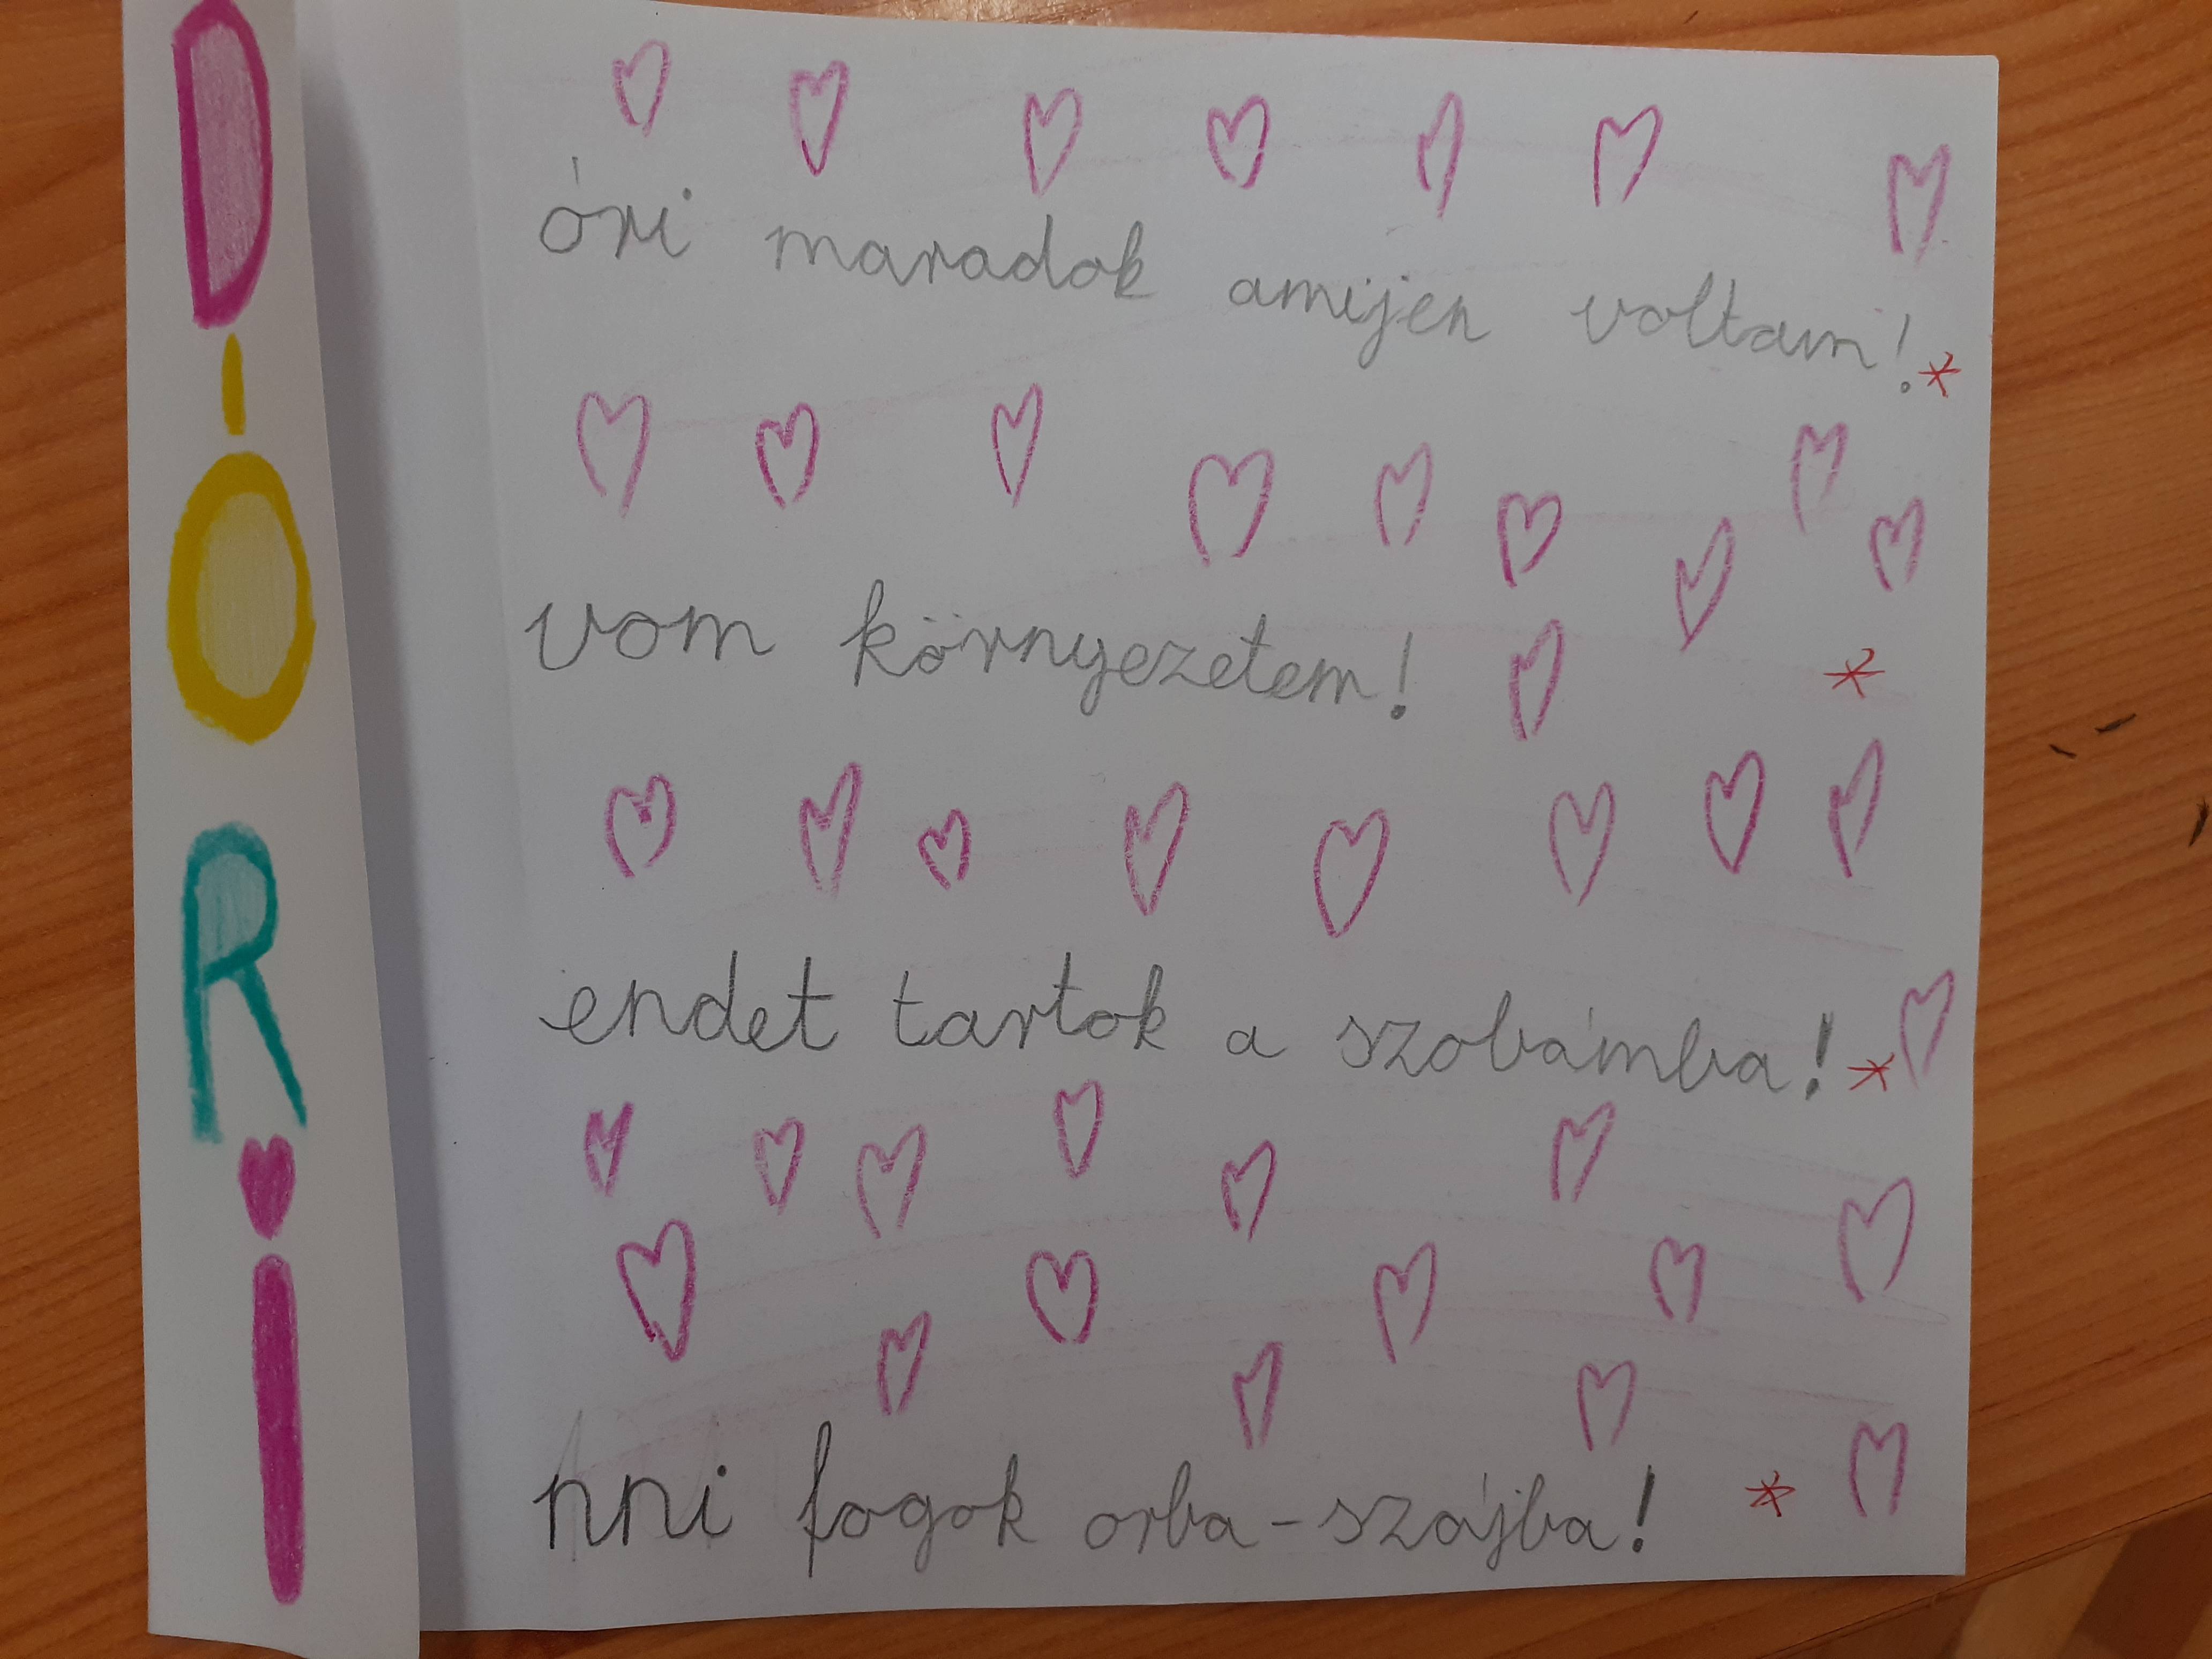 D óri maradok amijen voltam!*
Ó vom környezetem! *
R endet tartok a szobámba!*
I nni fogok orba-szájba! *